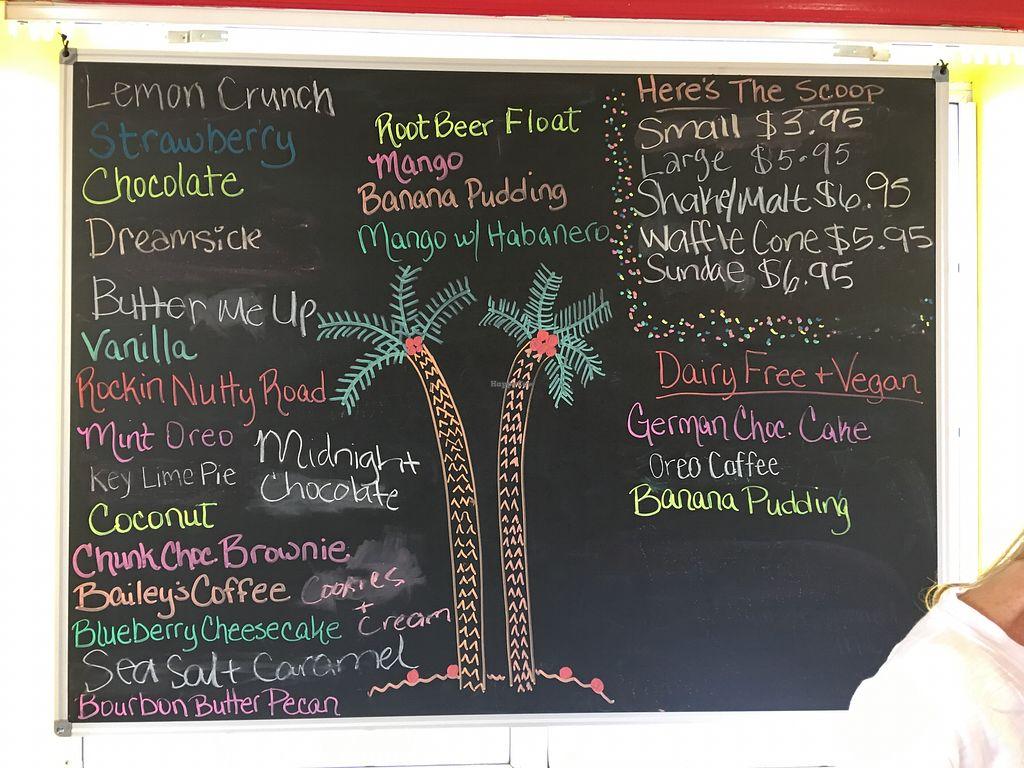 Lemon Crunch
Strawberry
Chocolate
Dreamsicle
Butter Me Up
Vanilla
Rockin Nutty Road
Mint Oreo
Key Lime Pie
Coconut
Chunk Choc Brownie
Bailey's Coffee
Blueberry Cheesecake
Sea Salt Caramel
Bourbon Butter Pecan
Midnight
Chocolate
Cookies
+
Cream
Root Beer Float
Mango
Banana Pudding
Mango w/ Habanero
Here's The Scoop
Small $3.95
Large $5.95
Shake/Malt $6.95
Waffle Cone $5.95
Sundae $6.95
Dairy Free + Vegan
German Choc. Cake
Oreo Coffee
Banana Pudding